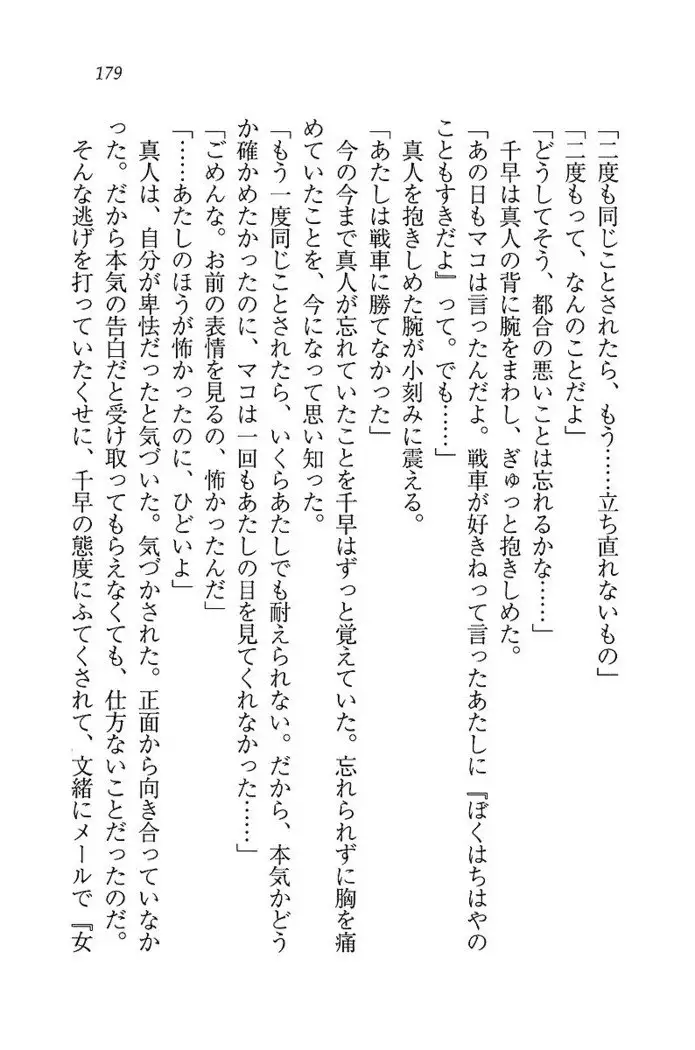 179
「二度も同じことされたら、もう……立ち直れないもの」
「二度もって、なんのことだよ」
「どうしてそう、都合の悪いことは忘れるかな……」
　千早は真人の背に腕をまわし、ぎゅっと抱きしめた。
「あの日もマコは言ったんだよ。戦車が好きねって言ったあたしに『ぼくはちはやの
こともすきだよ』って。でも……」
　真人を抱きしめた腕が小刻みに震える。
「あたしは戦車に勝てなかった」
　今の今まで真人が忘れていたことを千早はずっと覚えていた。忘れられずに胸を痛
めていたことを、今になって思い知った。
「もう一度同じことされたら、いくらあたしでも耐えられない。だから、本気かどう
か確かめたかったのに、マコは一回もあたしの目を見てくれなかった……」
「ごめんな。お前の表情を見るの、怖かったんだ」
「……あたしのほうが怖かったのに、ひどいよ」
　真人は、自分が卑怯だったと気づいた。気づかされた。正面から向き合っていなか
った。だから本気の告白だと受け取ってもらえなくても、仕方ないことだったのだ。
　そんな逃げを打っていたくせに、千早の態度にふてくされて、文緒にメールで『女